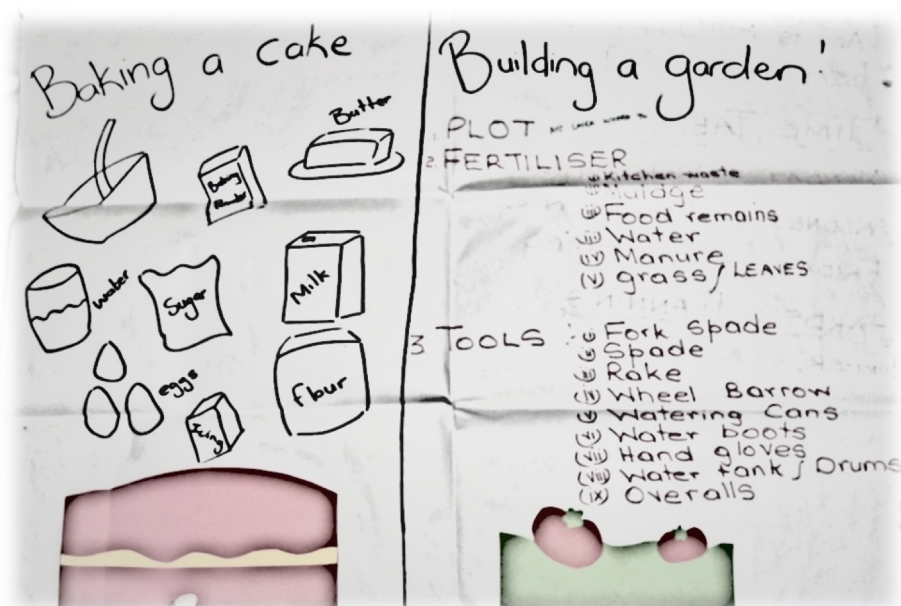 Baking a cake
Butter
Baking
Powder
water
Sugar
Milk
eggs
Icing
flour
Building a garden
1. PLOT
2. FERTILISER
Kitchen waste
(iii) Food remains
Water
(iv) Manure
(v) grass / LEAVES
3 TOOLS
Fork Spade
Spade
Rake
Wheel Barrow
Watering Cans
Water boots
Hand gloves
(viii) Water tank / Drums
(ix) Overalls